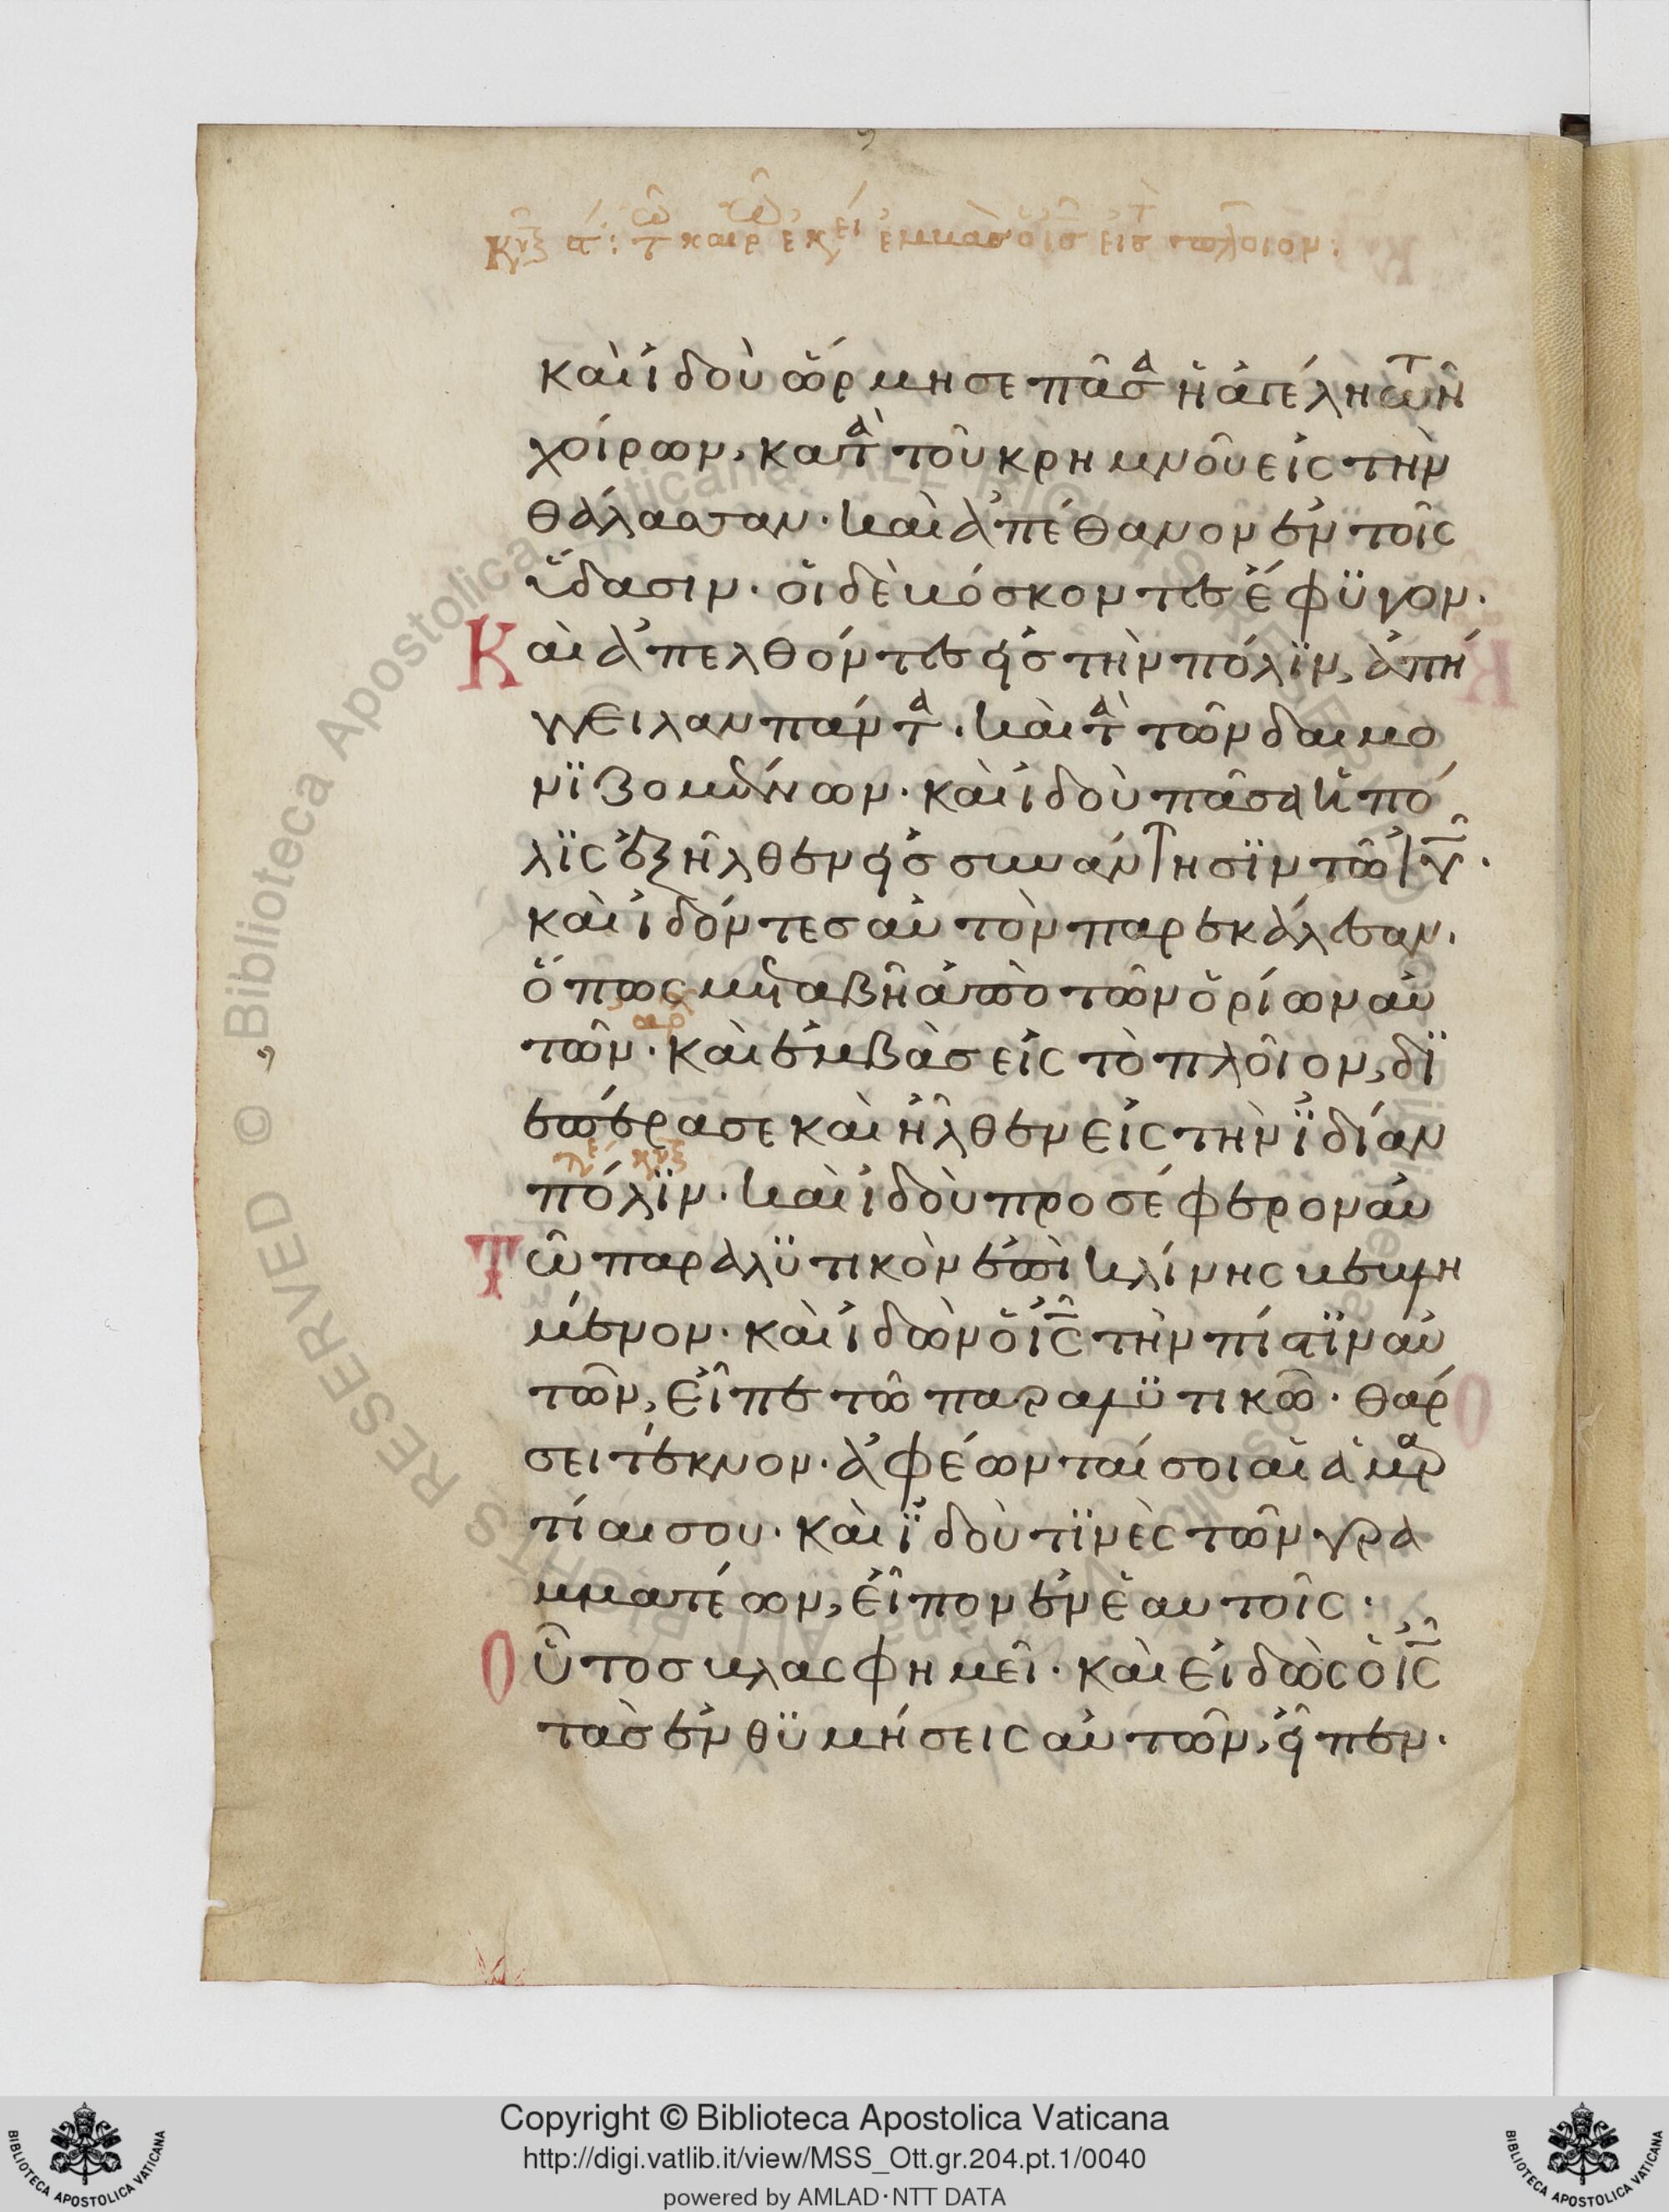 Κυρ̅ξ̅ α΄: τῶ καιρῶ ἐκεί ἐμβὰσ ὁ ι̅σ̅ εἰσ τὸ πλοῖον:
καὶ ἰδοὺ ὥρμησε πᾶσα ἡ ἀγέλη τῶν
χοίρων, κατὰ τοῦ κρημνοῦ εἰς τὴν
θάλασσαν· καὶ ἀπέθανον ἐν τοῖς
ὕδασιν· οἱ δὲ βόσκοντες ἔφϋγον·
Καὶ ἀπελθόντες εἰς τὴν πόλϊν, ἀπή
γγειλαν πάντα· καὶ τὰ τῶν δαιμο
νϊζομένων· καὶ ἰδοὺ πᾶσα ἡ πό
λϊς ἐξῆλθεν εἰς συνάντησϊν τῶ ι̅υ̅·
καὶ ἰδόντες αὐτὸν παρεκάλεσαν·
ὅπως μεταβῆ ἀπὸ τῶν ὁρίων αὐ
αρχ
τῶν· καὶ ἐμβὰς εἰς τὸ πλοῖον, δϊ
επέρασε καὶ ἦλθεν εἰς τὴν ἰδίαν
πόλϊν· καὶ ἰδοὺ προσέφερον αὐ
Τῶ παραλϋτικὸν ἐπὶ κλίνης βεβλη
μένον· καὶ ἰδὼν ὁ ι̅ς̅ τὴν πίστϊν αὐ
τῶν, εἶπε τῶ παραλϋτικῶ· θάρ
σει τέκνον· ἀφέωνταί σοι αἱ ἁμαρ
τίαι σου· καὶ ἰδοὺ τϊνὲς τῶν γρα
μματέων, εἶπον ἐν ἑαυτοῖς·
Οὗτος βλασφημεῖ· καὶ εἰδὼς ὁ ι̅ς̅
τὰς ἐνθϋμήσεις αὐτῶν, εἶπεν·
„Biblioteca Apostolica Vaticana ALL RIGHTS RESERVED ©
Copyright © Biblioteca Apostolica Vaticana
http://digi.vatlib.it/view/MSS_Ott.gr.204.pt.1/0040
powered by AMLAD·NTT DATA
BIBLIOTECA APOSTOLICA VATICANA
BIBLIOTECA APOSTOLICA VATICANA